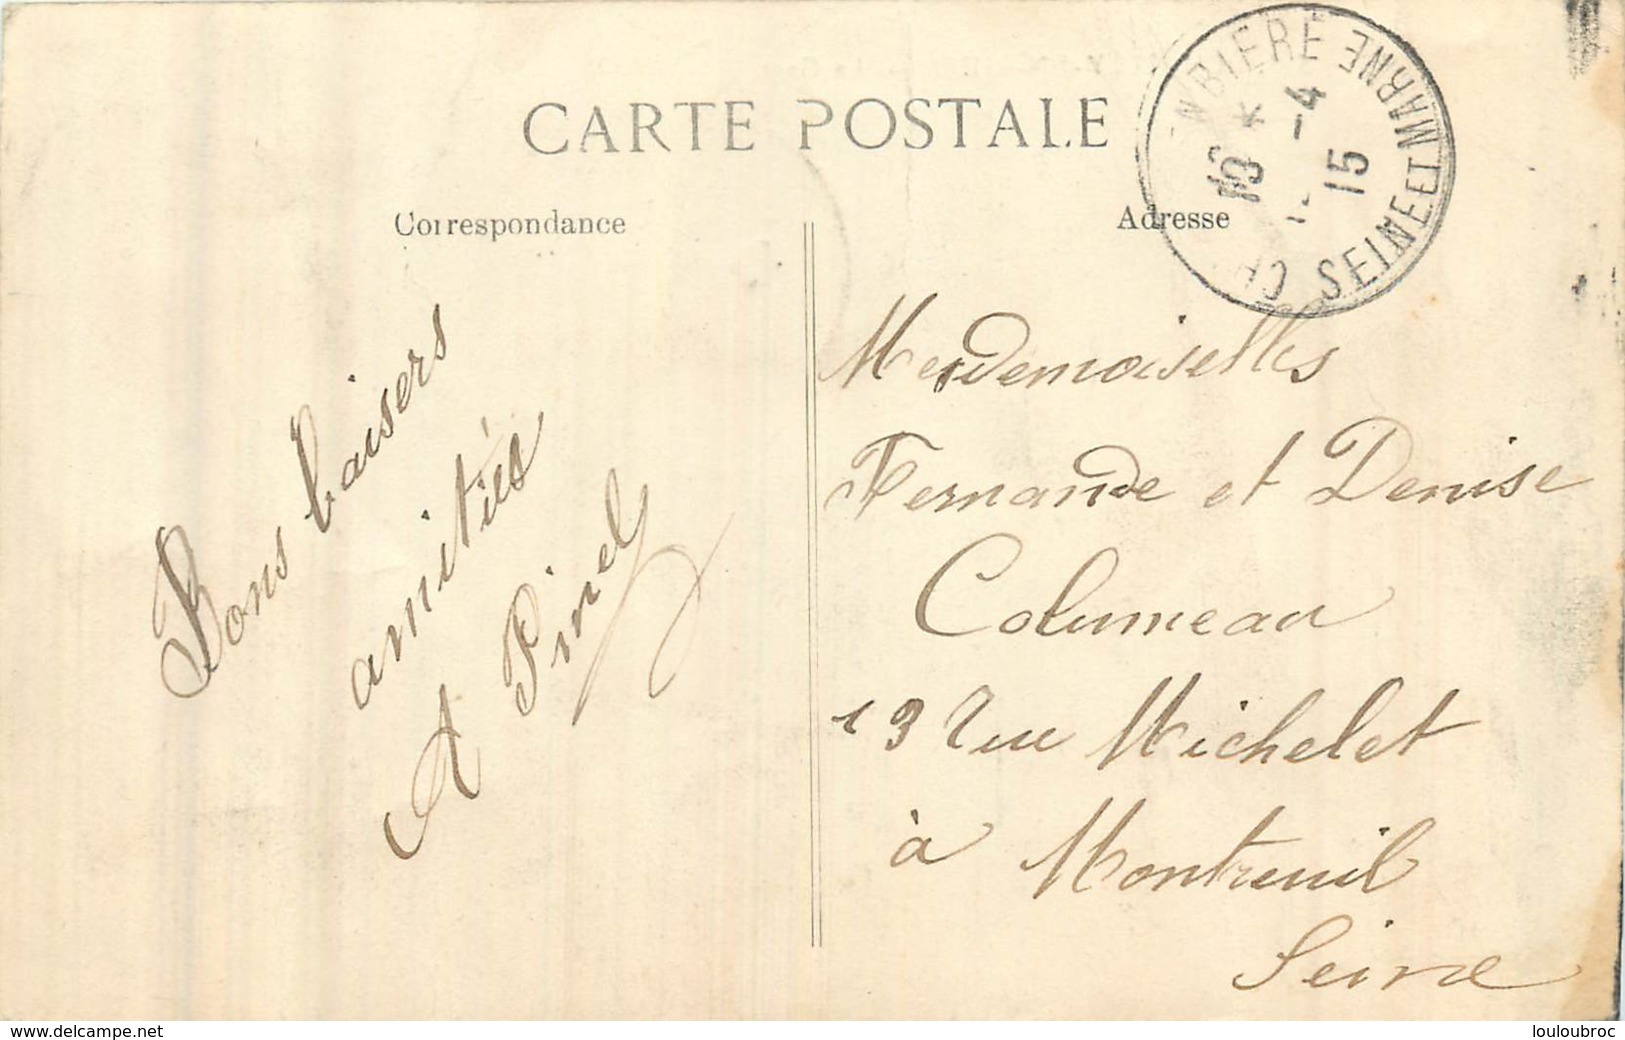 CARTE POSTALE
Correspondance
Adresse
SEINE ET MARNE
16 *
-4
15
Bons baisers
amitiés
A Pinel
Mesdemoiselles
Fernande et Denise
Columeau
13 rue Michelet
à Montreuil
Seine
www.delcampe.net
louloubroc